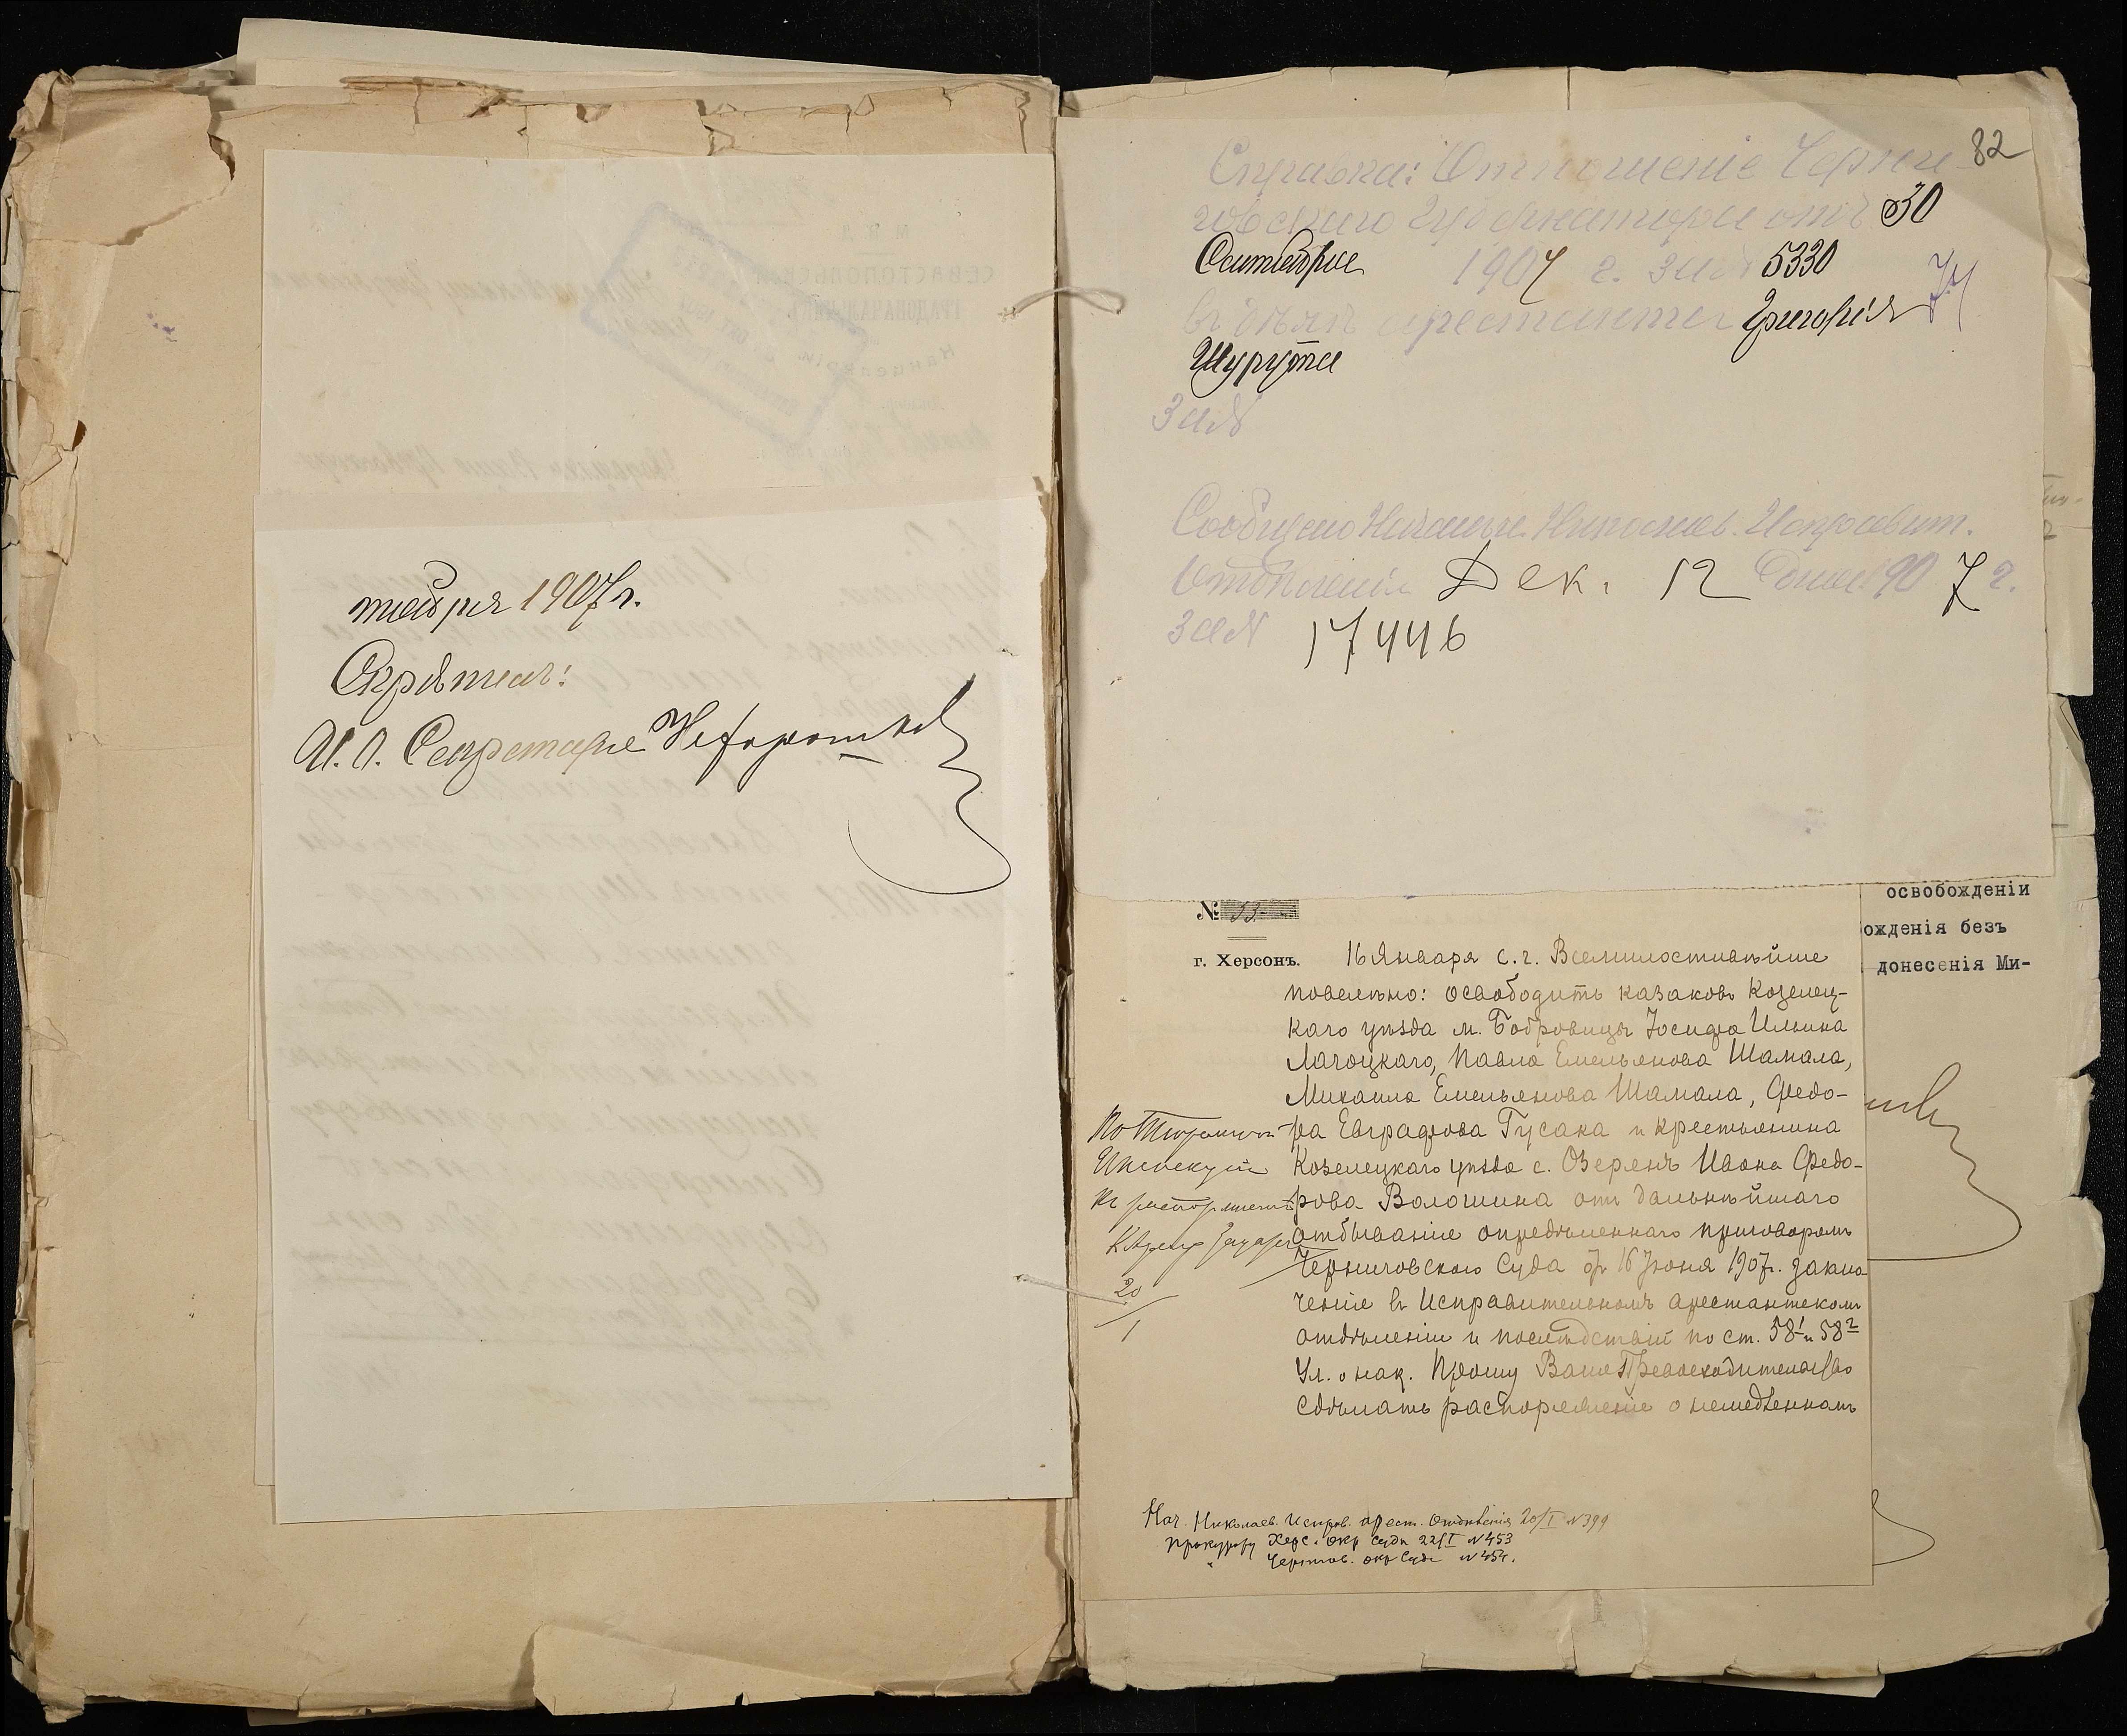 тября 1907 г.
Скрѣпилъ:
И. д. Секретаря
82
Справка: Отношеніе Черни-
говскаго Губернатора отъ 30
Сентября 1907 г. за № 5330
въ дѣлѣ арестанта Григорія
Шурута
За №
Сообщено Начальн. Николаев. Исправит.
Отдѣленія Дек. 12 дня 1907 г.
За № 17446
освобожденіи
ожденія безъ
донесенія Ми-
№ 53
г. Херсонъ.
16 Января с. г. Всемилостивѣйше
повелѣно: освободить казаковъ Козелец-
каго уѣзда м. Бобровицы Іосифа Ильина
Лагоцкаго, Павла Емельянова Шамала,
Михаила Емельянова Шамала, Федо-
ра Евграфова Гусака и крестьянина
Козелецкаго уѣзда с. Озерянъ Ивана Федо-
рова Волошина отъ дальнѣйшаго
отбыванія опредѣленнаго приговоромъ
Черниговскаго Суда от 16 Іюня 1907 г. заклю-
ченія въ Исправительномъ арестантскомъ
отдѣленіи и послѣдствій по ст. 58¹ и 58²
Ул. о нак. Прошу Ваше Превосходительство
сдѣлать распоряженіе о немедленномъ
По Тюремной
Инспекціи
20/1
Нач. Николаев. Исправ. арест. Отдѣленія 20/I № 399
Прокурору Херс. Окр Суда 22/I № 453
" Чернигов. окр Суда № 454.